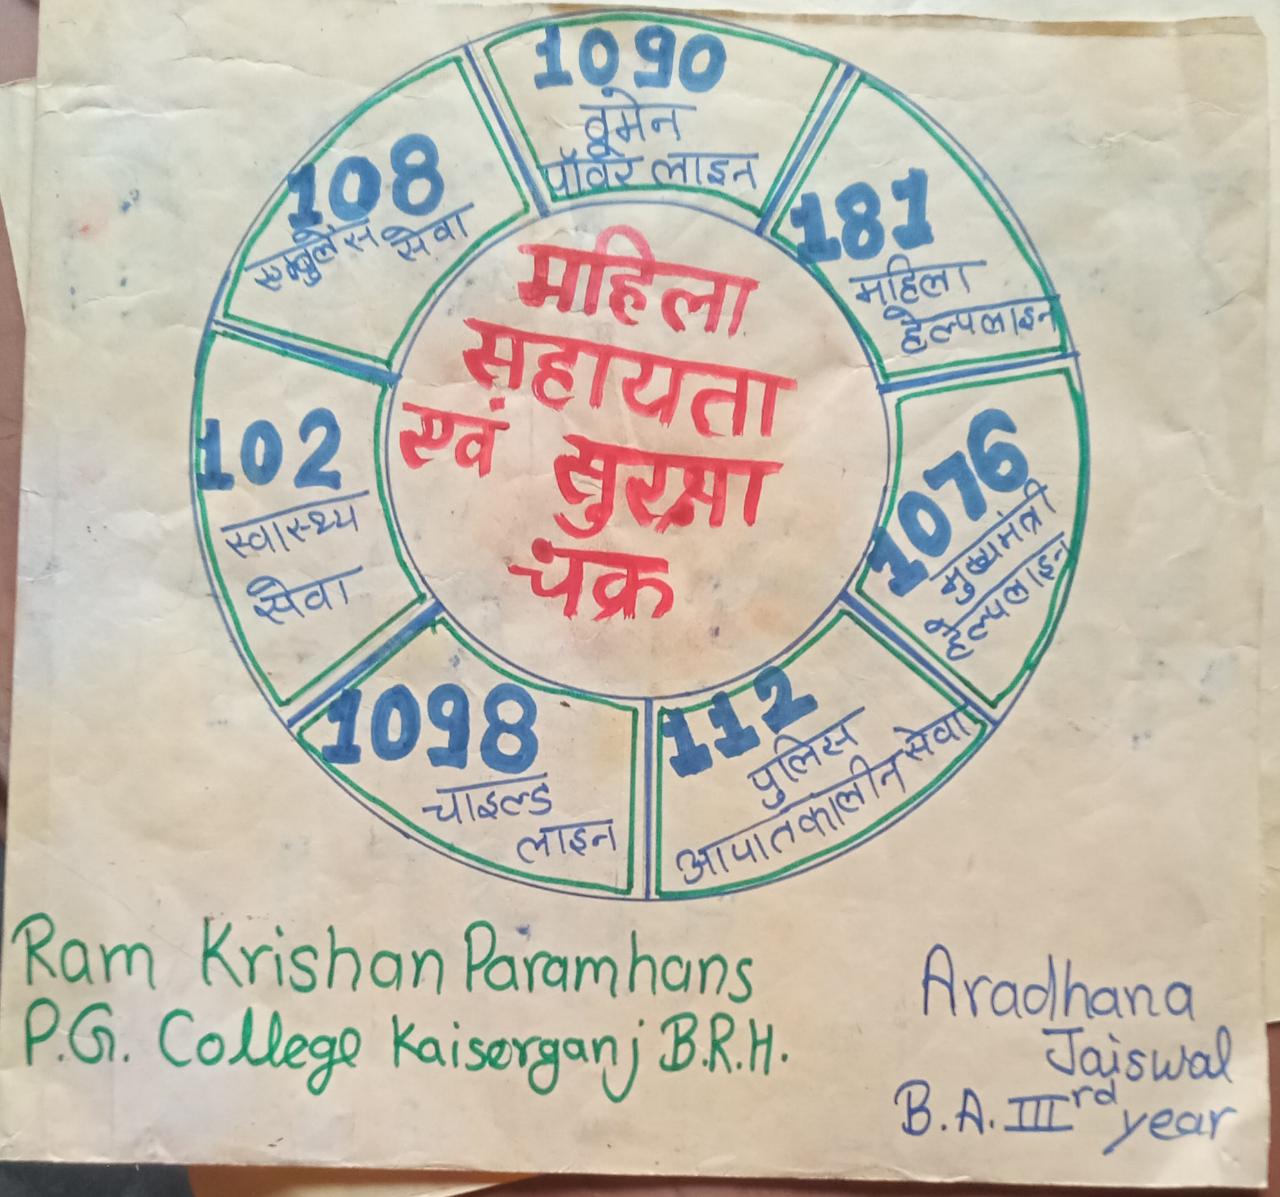 1090
वूमेन
पॉवर लाइन
181
महिला
हेल्पलाइन
1076
मुख्यमंत्री
हेल्पलाइन
112
पुलिस
आपातकालीन सेवा
1098
चाइल्ड
लाइन
102
स्वास्थ्य
सेवा
108
एम्बुलेंस सेवा
महिला
सहायता
एवं सुरक्षा
चक्र
Ram Krishan Paramhans
P.G. College Kaiserganj B.R.H.
Aradhana
Jaiswal
B.A. IIIrd year